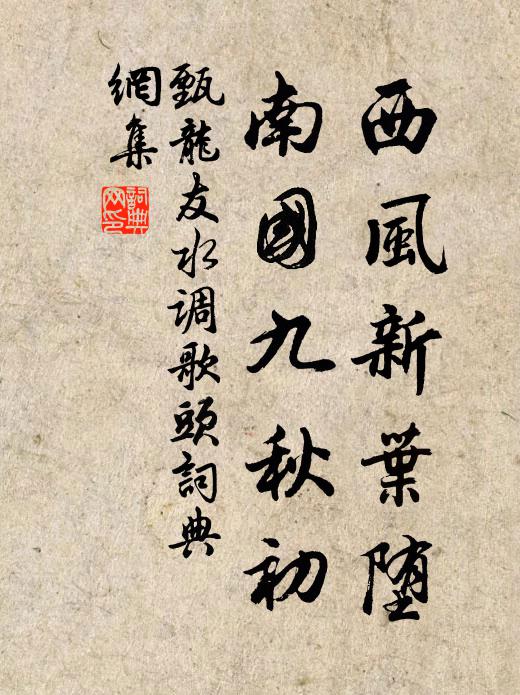 西風新葉堕
南國九秋初
甄龍友水调歌頭詞典
網集
詞典网印